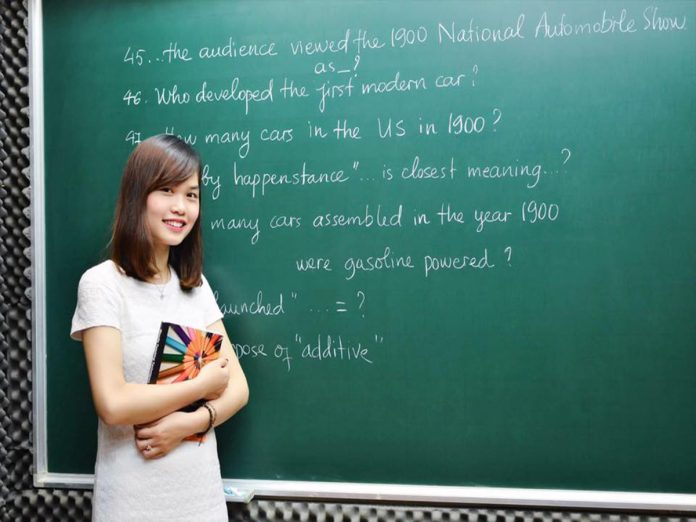 45...the audience viewed the 1900 National Automobile Show
as_?
46. Who developed the first modern car?
47. How many cars in the US in 1900?
by happenstance"...is closest meaning...?
many cars assembled in the year 1900
were gasoline powered?
launched" .... = ?
pose of "additive"